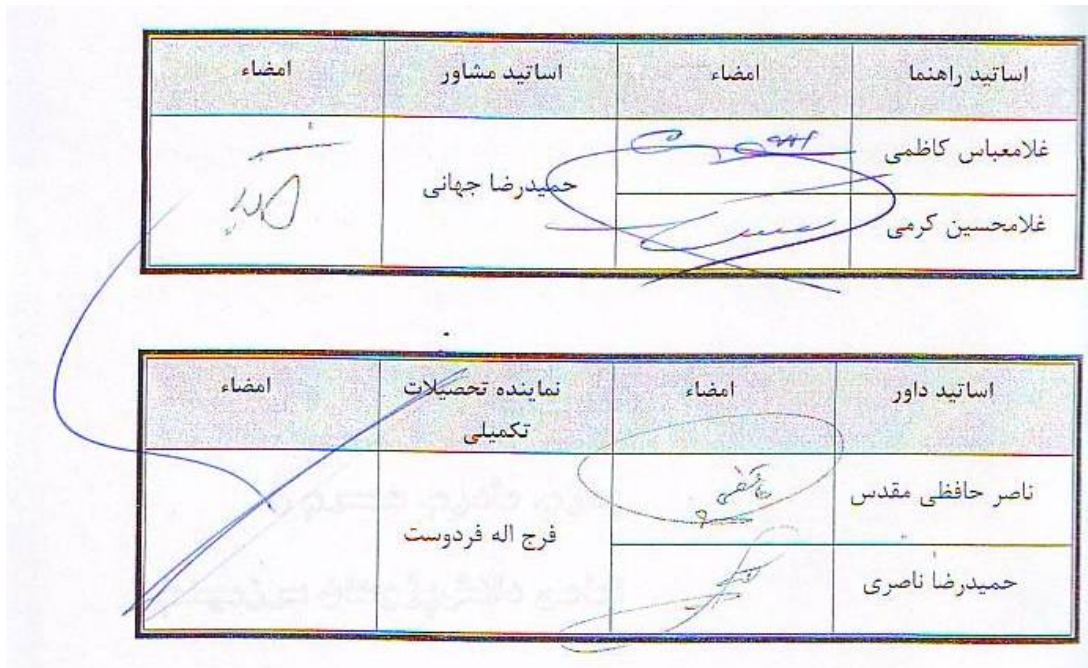 اساتید راهنما امضاء اساتید مشاور امضاء
غلامعباس کاظمی
حمیدرضا جهانی
غلامحسین کرمی
اساتید داور امضاء نماینده تحصیلات امضاء
تکمیلی
ناصر حافظی مقدس
فرج اله فردوست
حمیدرضا ناصری